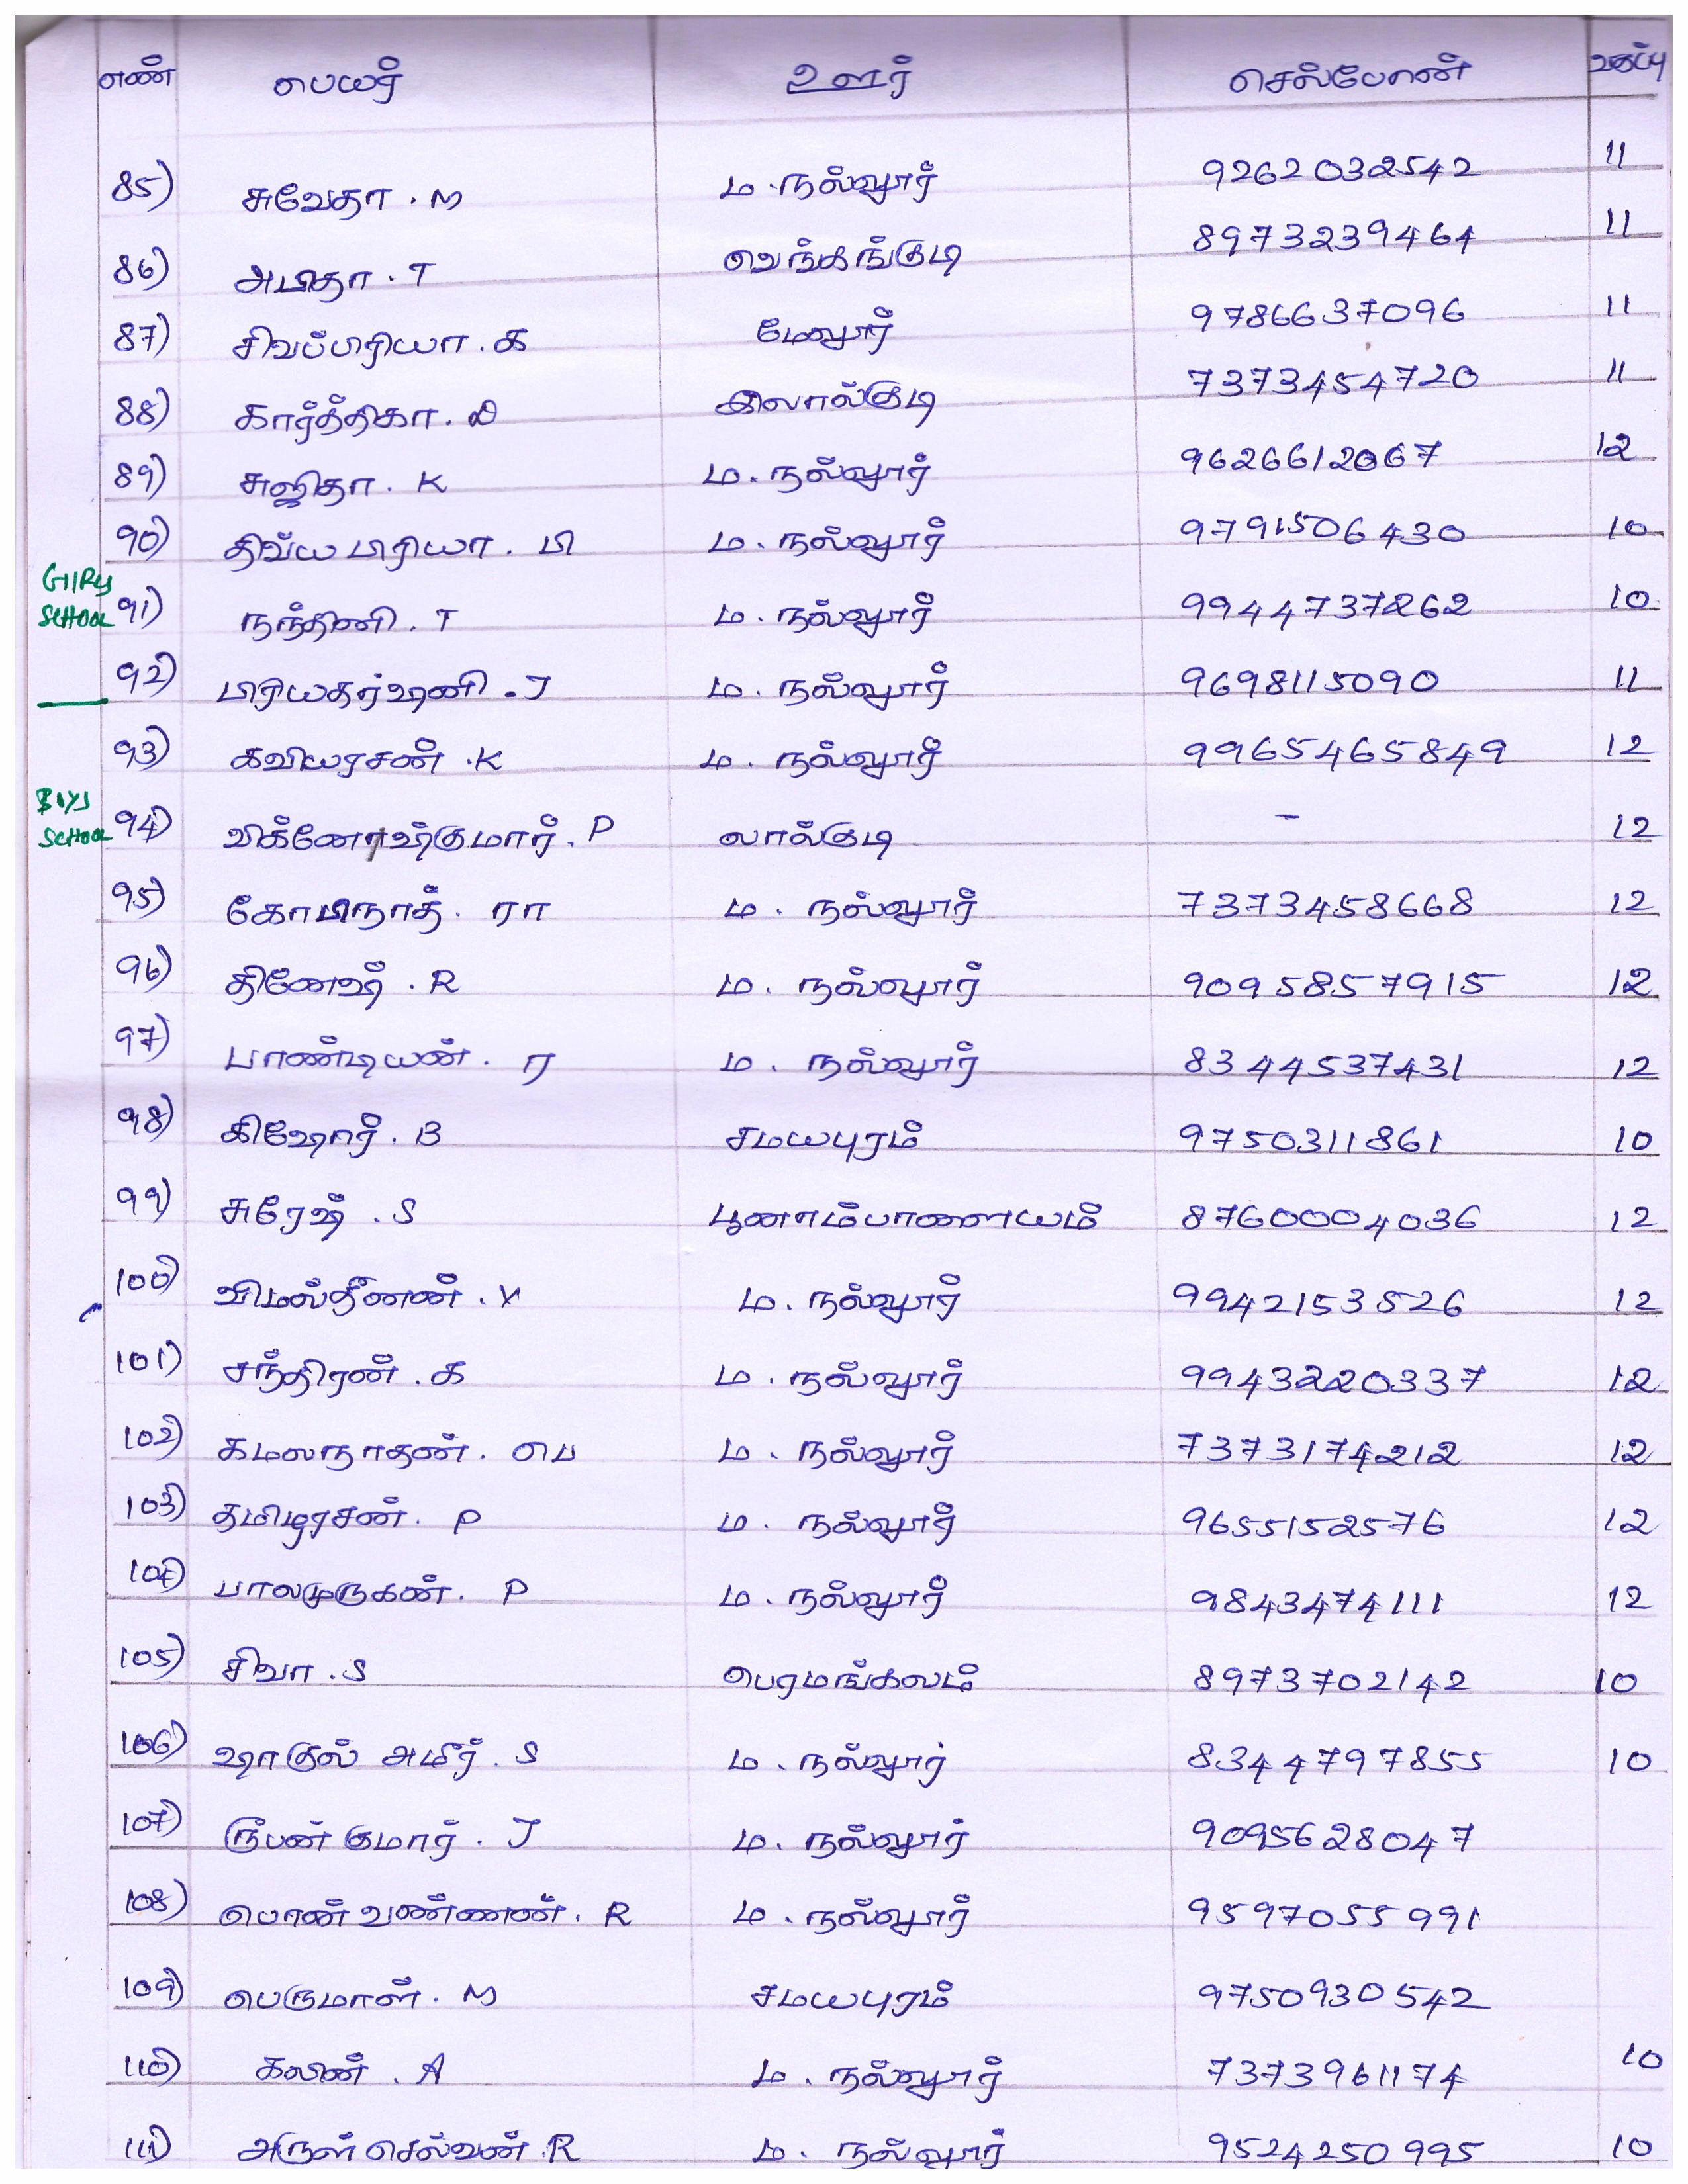 எண் பெயர் ஊர் செல்போன் வகுப்பு
85) சுவேதா . M ம . நல்லூர் 9262032542 11
86) அபிதா . T வெங்கங்குடி 8973239464 11
87) சிவப்பிரியா . க மேலூர் 9786637096 11
88) கார்த்திகா . D இலால்குடி 7373454720 11
89) சுஜிதா . K ம . நல்லூர் 9626612067 12
90) திவ்ய பிரியா . பி ம . நல்லூர் 9791506430 10
GIRLS
SCHOOL 91) நந்தினி . T ம . நல்லூர் 9944737262 10
92) பிரியதர்ஷனி . J ம . நல்லூர் 9698115090 11
93) கவியரசன் . K ம . நல்லூர் 9965465849 12
BOYS
SCHOOL 94) விக்னேஷ்குமார் . P லால்குடி - 12
95) கோபிநாத் . ரா ம . நல்லூர் 7373458668 12
96) தினேஷ் . R ம . நல்லூர் 9095857915 12
97) பாண்டியன் . ர ம . நல்லூர் 8344537431 12
98) கிஷோர் . B சமயபுரம் 9750311861 10
99) சுரேஷ் . S பூனாம்பாளையம் 8760004036 12
100) விமல்தீனன் . V ம . நல்லூர் 9942153526 12
101) சந்திரன் . க ம . நல்லூர் 9943220337 12
102) கமலநாதன் . பெ ம . நல்லூர் 7373174212 12
103) தமிழரசன் . P ம . நல்லூர் 9655152576 12
104) பாலமுருகன் . P ம . நல்லூர் 9843474111 12
105) சிவா . S பெரமங்கலம் 8973702142 10
106) ஷாகுல் அமீர் . S ம . நல்லூர் 8344797855 10
107) ரூபன் குமார் . J ம . நல்லூர் 9095628047
108) பொன் வண்ணன் . R ம . நல்லூர் 9597055991
109) பெருமாள் . M சமயபுரம் 9750930542
110) கலின் . A ம . நல்லூர் 7373961174 10
111) அருள் செல்வன் . R ம . நல்லூர் 9524250995 10